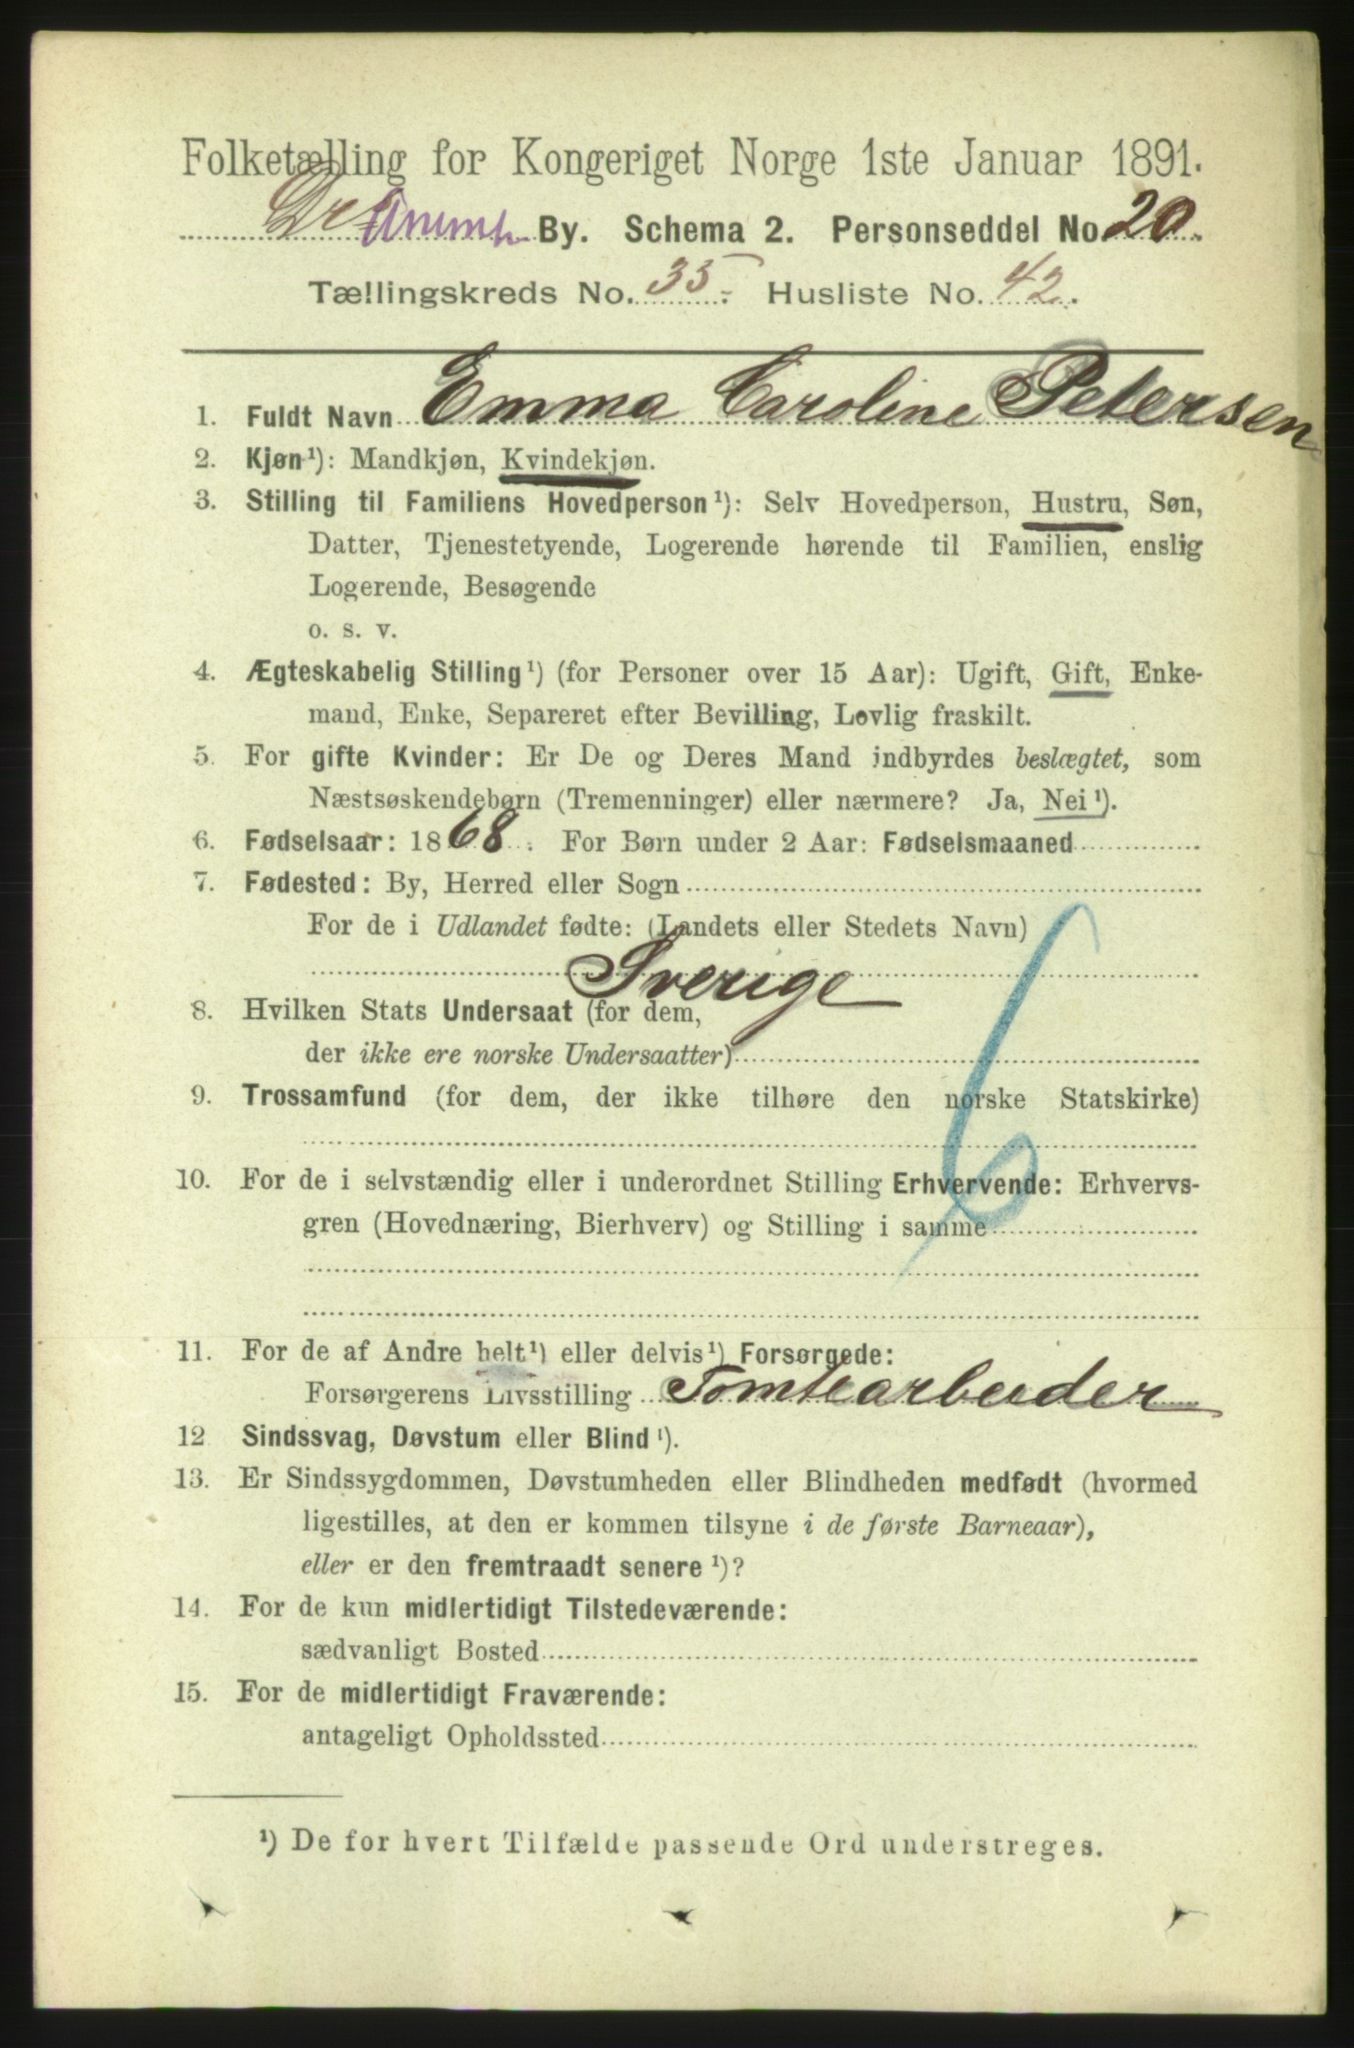 Folketælling for Kongeriget Norge 1ste Januar 1891.
By. Schema 2. Personseddel No. 20.
Tællingskreds No. 35. Husliste No. 42.
1. Fuldt Navn Emma Caroline Petersen
2. Kjøn¹): Mandkjøn, Kvindekjøn.
3. Stilling til Familiens Hovedperson¹): Selv Hovedperson, Hustru, Søn,
Datter, Tjenestetyende, Logerende hørende til Familien, enslig
Logerende, Besøgende
o. s. v.
4. Ægteskabelig Stilling¹) (for Personer over 15 Aar): Ugift, Gift, Enke-
mand, Enke, Separeret efter Bevilling, Lovlig fraskilt.
5. For gifte Kvinder: Er De og Deres Mand indbyrdes beslægtet, som
Næstsøskendebørn (Tremenninger) eller nærmere? Ja, Nei¹).
6. Fødselsaar: 1868. For Børn under 2 Aar: Fødselsmaaned
7. Fødested: By, Herred eller Sogn
For de i Udlandet fødte: (Landets eller Stedets Navn)
Sverige
8. Hvilken Stats Undersaat (for dem,
der ikke ere norske Undersaatter)
9. Trossamfund (for dem, der ikke tilhøre den norske Statskirke)
6
10. For de i selvstændig eller i underordnet Stilling Erhvervende: Erhvervs-
gren (Hovednæring, Bierhverv) og Stilling i samme
11. For de af Andre helt¹) eller delvis¹) Forsørgede:
Forsørgerens Livsstilling Tomtearbeider
12 Sindssvag, Døvstum eller Blind¹).
13. Er Sindssygdommen, Døvstumheden eller Blindheden medfødt (hvormed
ligestilles, at den er kommen tilsyne i de første Barneaar),
eller er den fremtraadt senere¹)?
14. For de kun midlertidigt Tilstedeværende:
sædvanligt Bosted
15. For de midlertidigt Fraværende:
antageligt Opholdssted
¹) De for hvert Tilfælde passende Ord understreges.